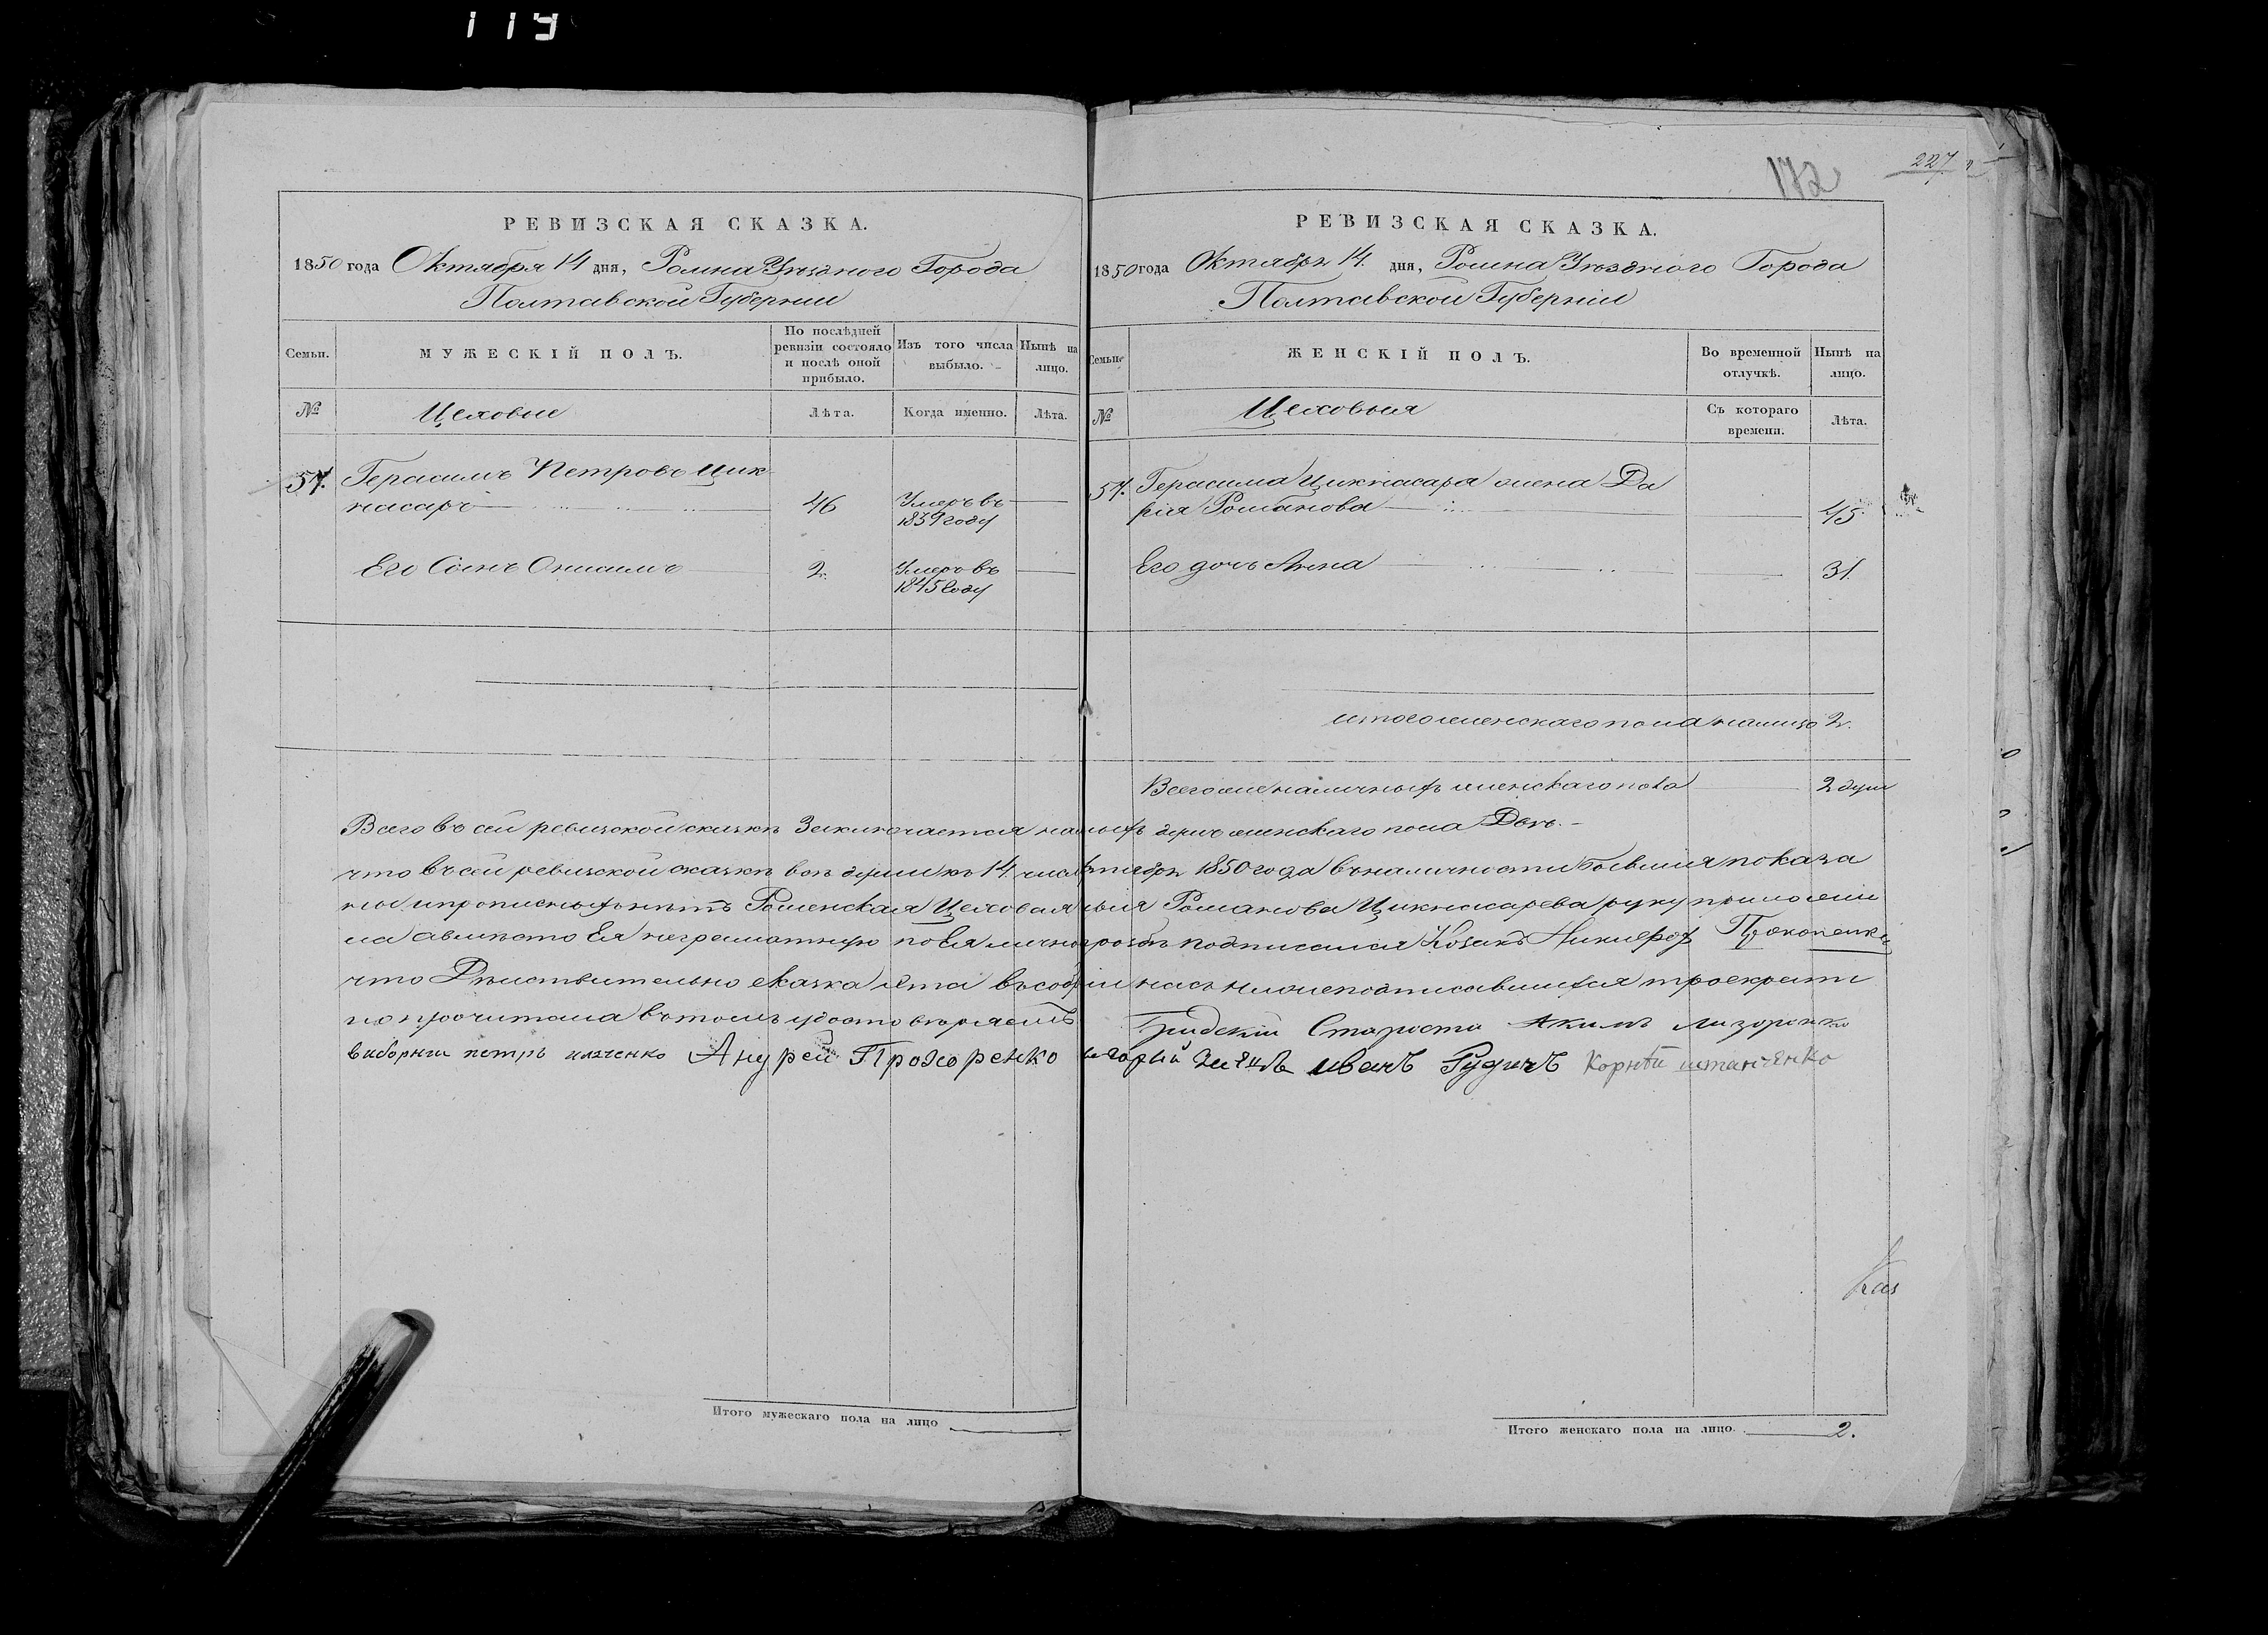 119
172
227
РЕВИЗСКАЯ СКАЗКА.
1850 года Октября 14 дня, Ромна Уѣзднаго Города
Полтавской Губерніи
Семьи.
МУЖЕСКІЙ ПОЛЪ.
По послѣдней ревизіи состояло и послѣ оной прибыло.
Изъ того числа выбыло.
Нынѣ на лицо.
№
Цеховые
Лѣта.
Когда именно.
Лѣта.
57. Герасимъ Петровъ Цик
насаръ 46 Умеръ въ
1839 году
Его Сынъ Онисимъ 2. Умеръ въ
1845 Году
РЕВИЗСКАЯ СКАЗКА.
1850 года Октября 14. дня, Ромна Уѣзднаго Города
Полтавской Губерніи
Семьи.
ЖЕНСКІЙ ПОЛЪ.
Во временной отлучкѣ.
Нынѣ на лицо.
№
Цеховыя
Съ котораго времени.
Лѣта.
57. Герасима Цикнасара жена Да
рія Романова 45.
Его дочь Анна 31.
итого женскаго пола налицо 2.
Всего же наличныхъ женскаго пола 2 души
Всего въ сей ревизской сказкѣ Заключается налыхъ душъ женскаго пола Двѣ.
что въ сей ревизской сказкѣ всѣ души къ 14. числ 1850 года въ наличности бывшія показа
ны и прописныхъ нѣтъ Роменская Цеховая Романова Цикнасарева руку приложи
ла а вмѣсто Ея неграмотную по Ея лично прозбѣ подписался Козакъ Никифор Прокопенко
что Дѣйствительно сказка Эта въ насъ нижеподписавшихся троекратн
но прочитана въ томъ удостовѣряемъ Градскій Староста Акимъ
виборни петръ Андрей Прохоренко иванъ Рудичъ Корнѣй
Итого мужескаго пола на лицо
Итого женскаго пола на лицо 2.